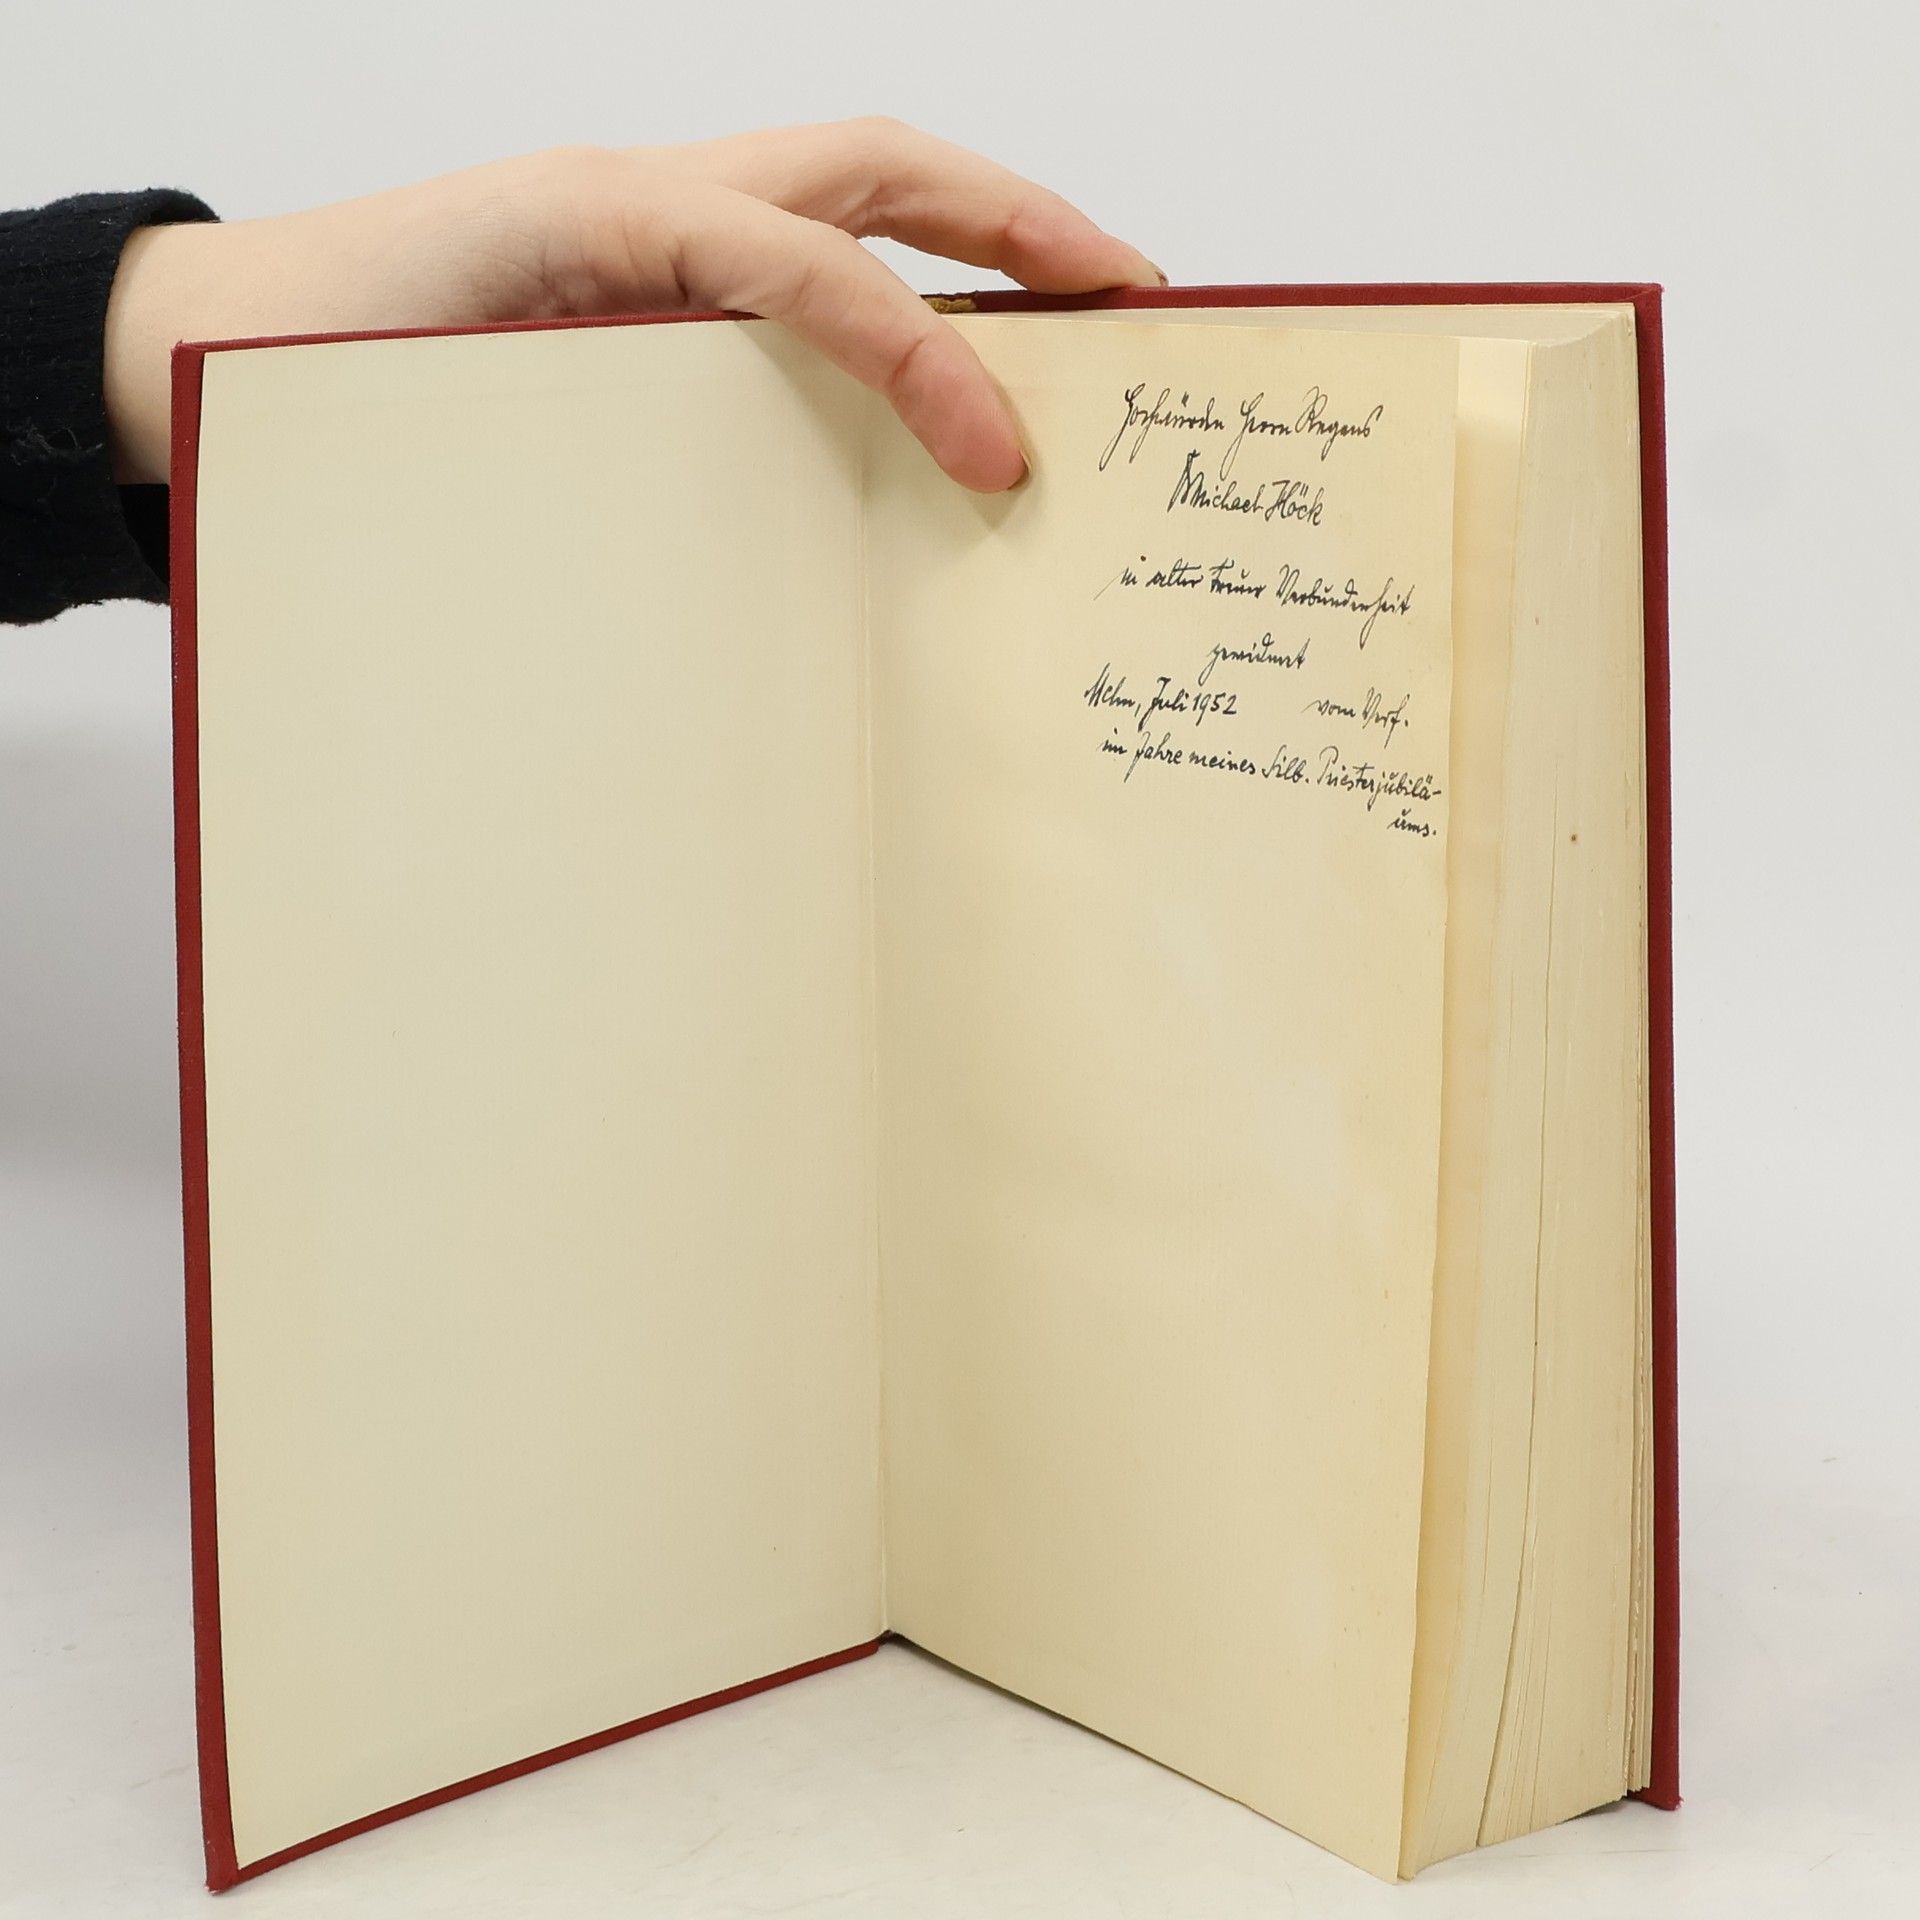 Hochwürden Herrn Regens
Michael Höck
in alter treuer Verbundenheit
gewidmet
Mchn, Juli 1952 vom Verf.
im Jahre meines Silb. Priesterjubilä-
ums.